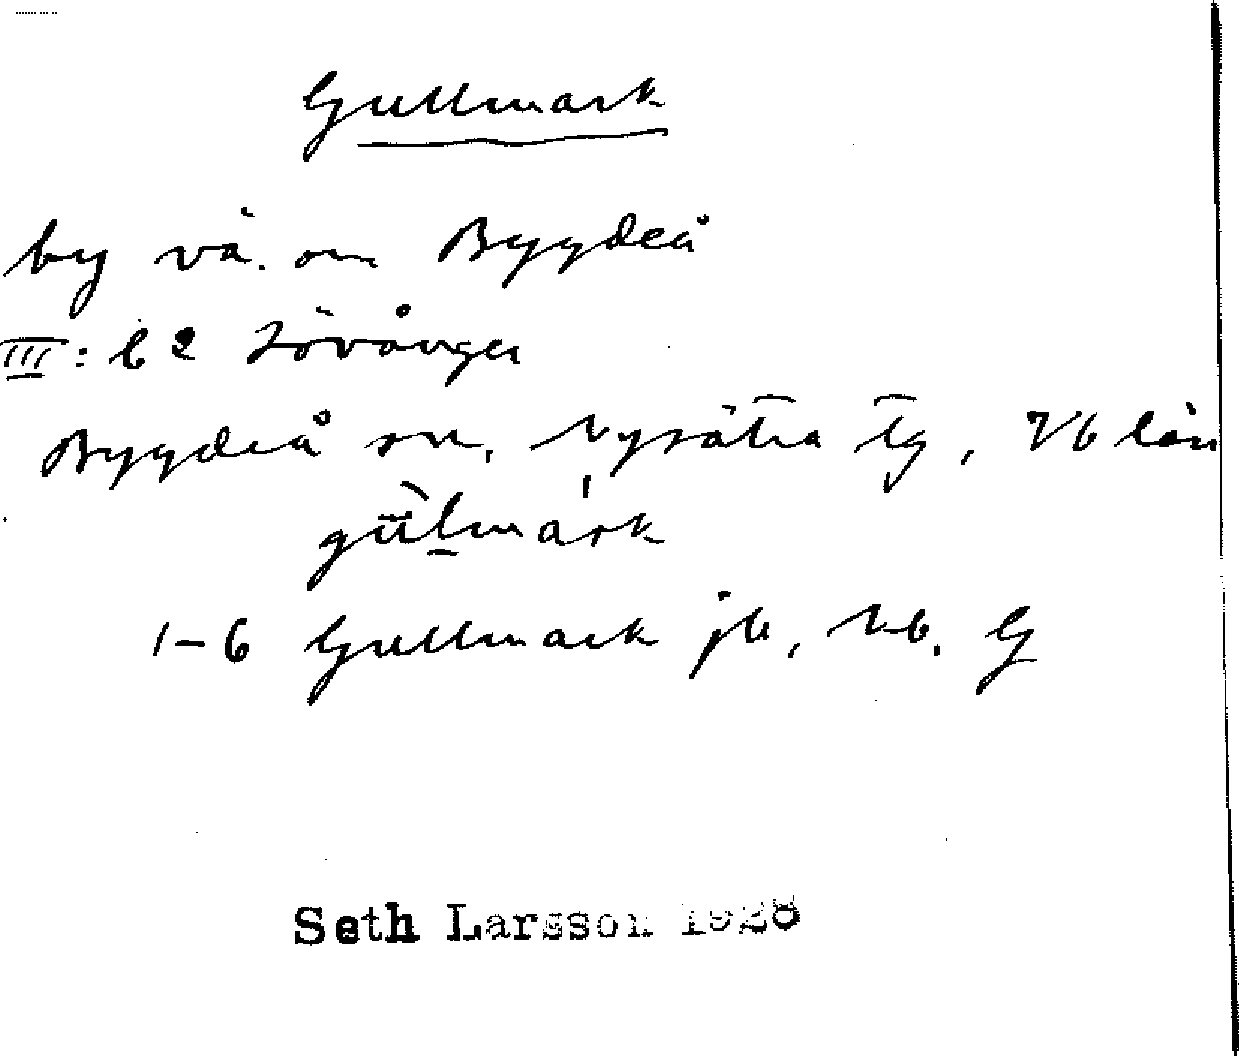 Gullmark
by vä. om Bygdeå
III: b 2 Lövånger
Bygdeå sn, Nysätra tg, Vb län
1-6 Gullmark jb, G
Seth Larsson 1928